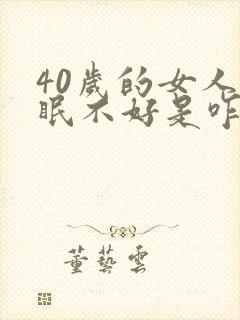 40歲的女人
眠不好是咋
董藝雲